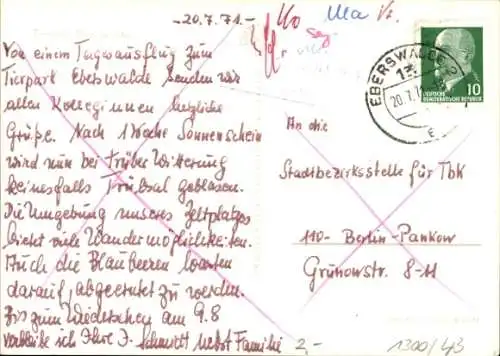 -20.7.71.-
Von einem Tagesausflug zum
Tierpark Eberswalde senden wir
allen Kolleginnen herzliche
Grüße. Nach 1 Woche Sonnenschein
wird nun bei trüber Witterung
keinesfalls Trübsal geblasen.
Die Umgebung unseres Zeltplatzes
bietet viele Wandermöglichkeiten.
Auch die Blaubeeren warten
darauf, abgeerntet zu werden.
Bis zum Wiedersehen am 9.8
verbleibe ich Ihre J. Schmitt nebst Familie
EBERSWALDE 2
20.7.
10
DEUTSCHE
DEMOKRATISCHE REPUBLIK
An die
Stadtbezirksstelle für TbK
110- Berlin-Pankow
Grünowstr. 8-11
2.-
1300/43